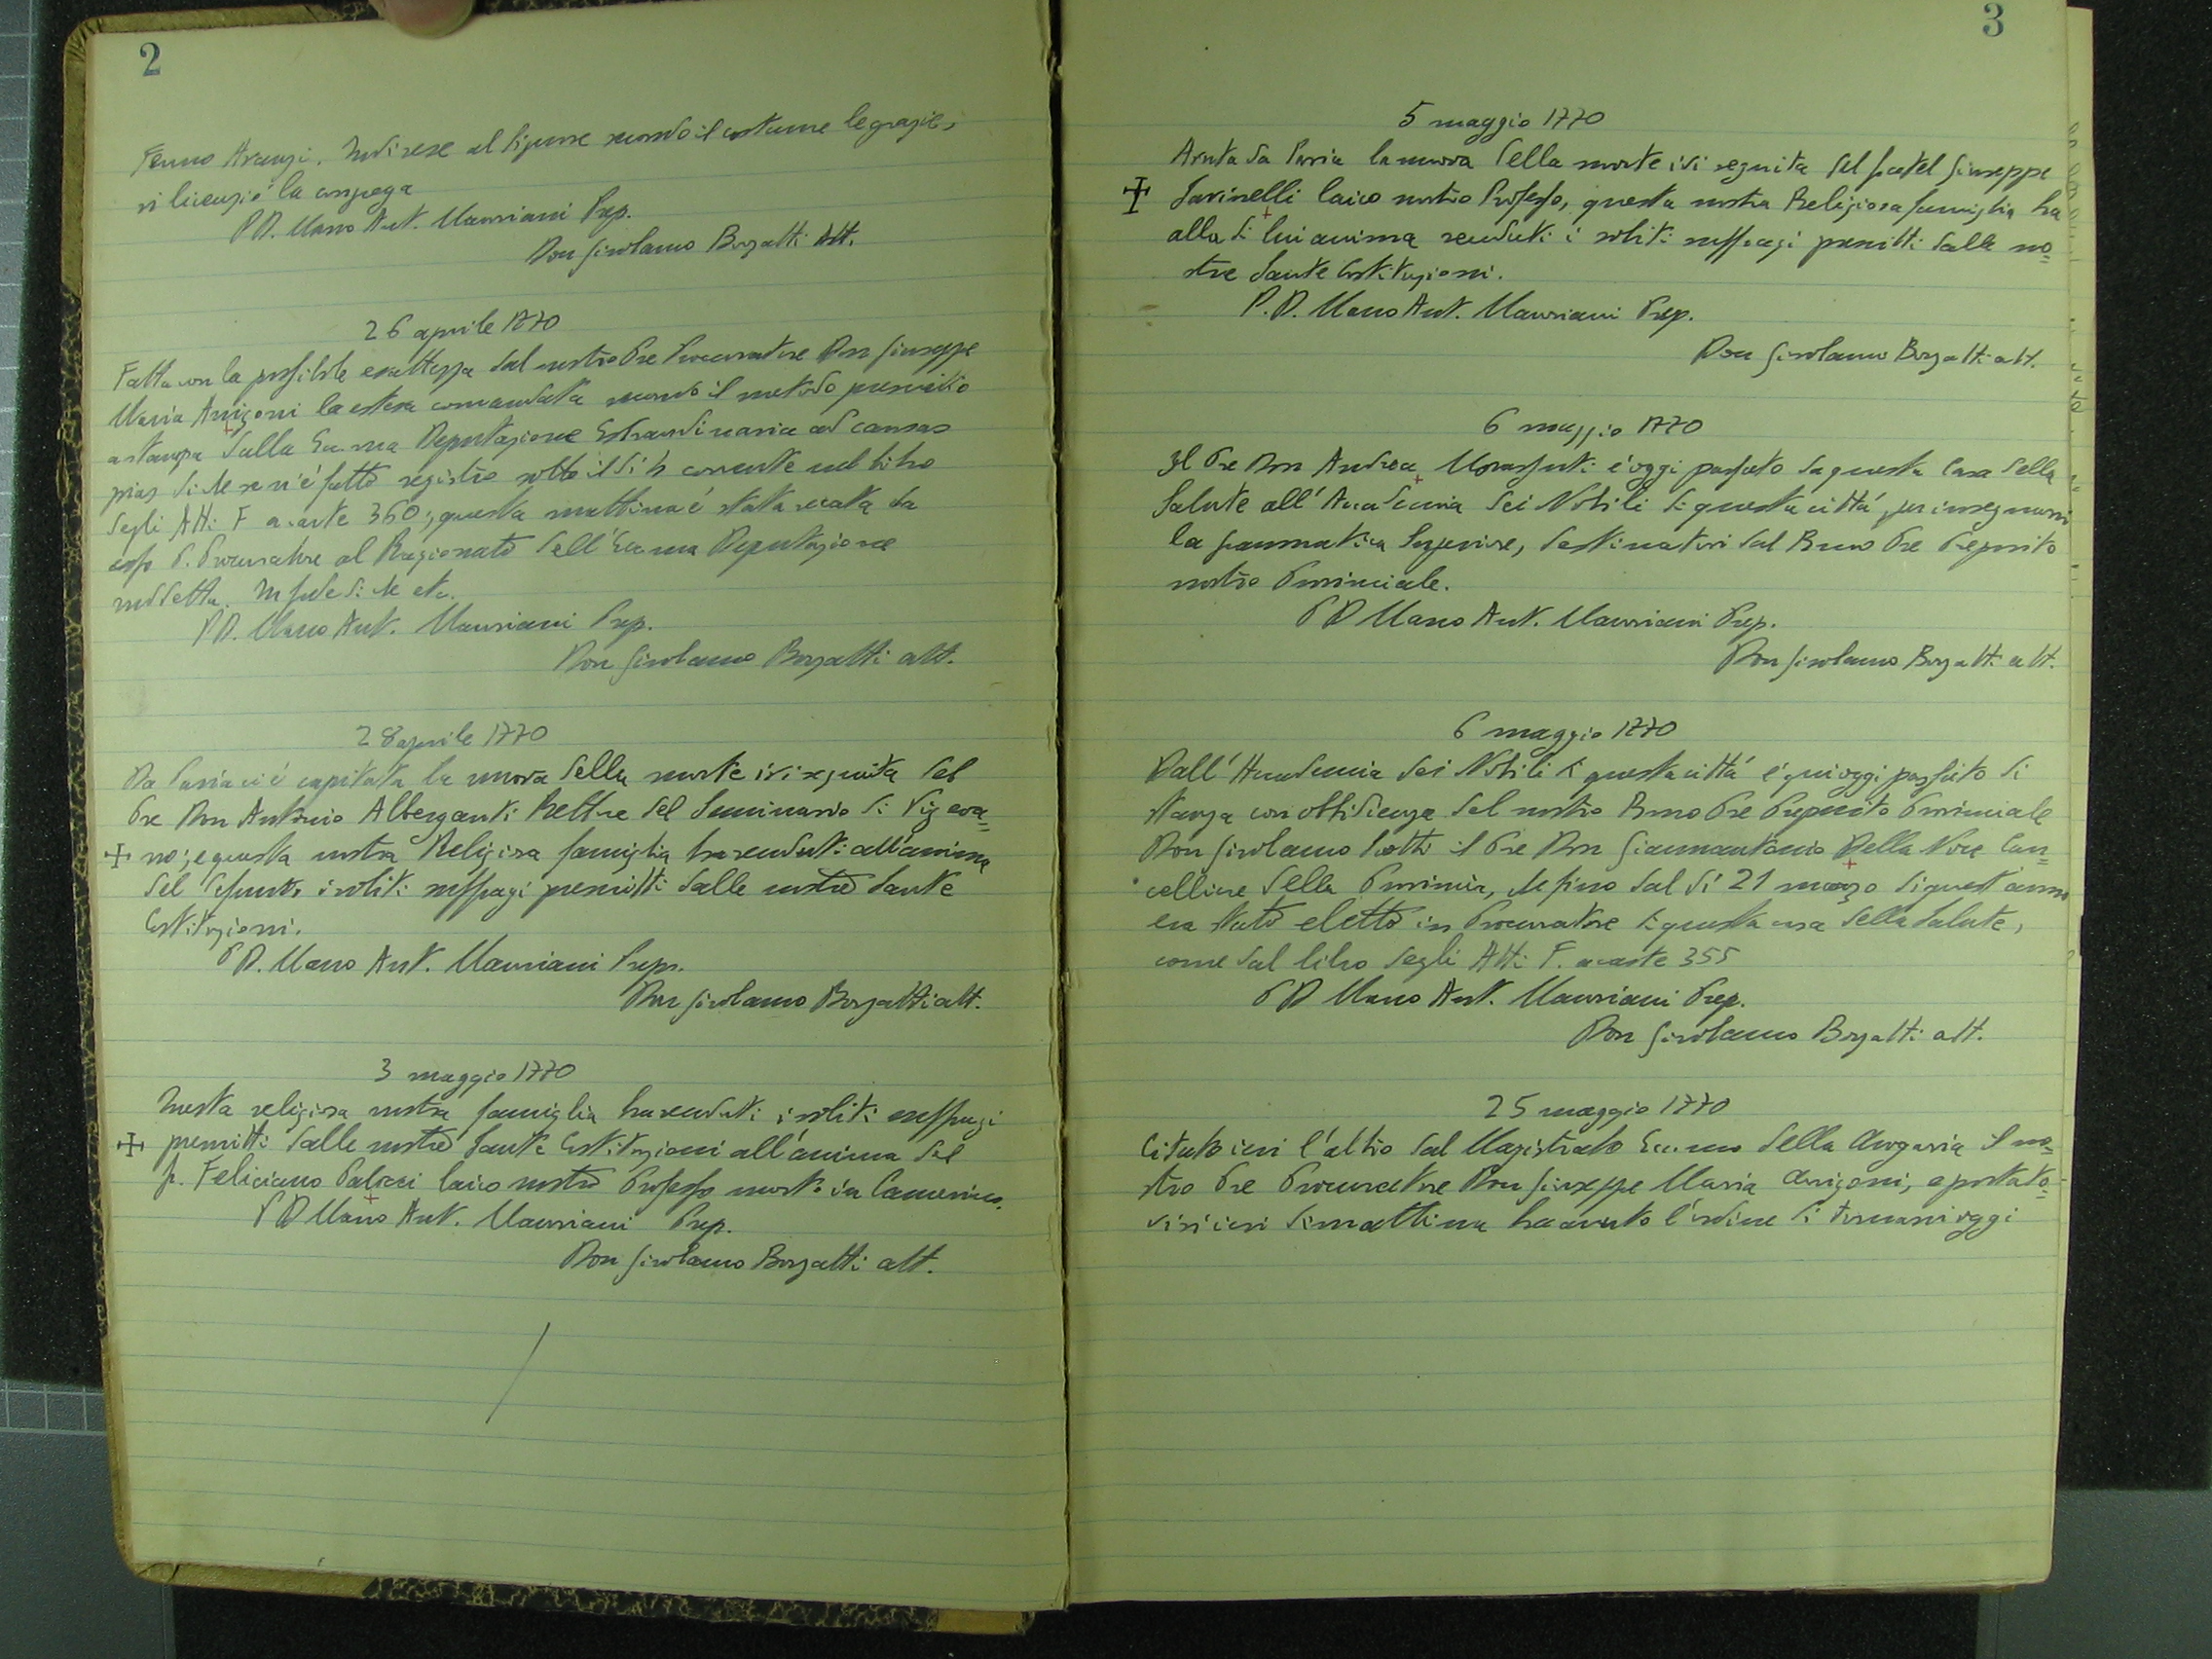 2
Fermo Avanzi. Indi rese al Signore secondo il costume le grazie,
si licenziò la congrega
P.D. Marco Ant. Mauriani Prep.
Don Girolamo Borzatti Att.
26 aprile 1770
Fatta con la possibile esattezza dal nostro Pre Procuratore Don Giuseppe
Maria Arrigoni la comandata secondo il metodo prescritto
a stampa dalla Ecc.ma Deputazione Estraordinaria ad causas
pias di che se n'è fatto registro sotto il dì corrente nel libro
degli Atti F a carte 360; questa mattina è stata recata da
esso P. Procuratore al Ragionato dell'Ecc.ma Deputazione
suddetta. In fede di che etc.
P.D. Marco Ant. Mauriani Prep.
Don Girolamo Borzatti att.
28 aprile 1770
Da Pavia ci è capitata la nuova della morte ivi seguita del
Pre Don Antonio Alberganti Rettore del Seminario di Vigeva=
no; e questa nostra Religiosa famiglia ha renduti all'anima
del defunto i soliti suffragi prescritti dalle nostre Sante
Costituzioni.
P.D. Marco Ant. Mauriani Prep.
Don Girolamo Borzatti att.
3 maggio 1770
Questa religiosa nostra famiglia ha renduti i soliti suffragi
prescritti dalle nostre Sante Costituzioni all'anima del
fr. Feliciano laico nostro Professo morto in Camerino.
P D Marco Ant. Mauriani Prep.
Don Girolamo Borzatti att.
3
5 maggio 1770
Avuta da Pavia la nuova della morte ivi seguita del fratel Giuseppe
Savinelli laico nostro Professo, questa nostra Religiosa famiglia ha
alla di lui anima renduti i soliti suffragi prescritti dalle no=
stre Sante Costituzioni.
P.D. Marco Ant. Mauriani Prep.
Don Girolamo Borzatti att.
6 maggio 1770
Il Pre Don Andrea è oggi passato da questa Casa della
Salute all'Accademia dei Nobili di questa città, per insegnarvi
la grammatica Superiore, destinatovi dal Rmo Pre Preposito
nostro Provinciale.
P D Marco Ant. Mauriani Prep.
Don Girolamo Borzatti att.
6 maggio 1770
Dall'Accademia dei Nobili di questa città è qui oggi passato di
stanza con obbidienza del nostro Rmo Pre Preposito Provinciale
Don Girolamo il Pre Don Gianmantonio Della Noce Can=
celliere della Provincia, che fino dal dì 21 marzo di quest'anno
era stato eletto in Procuratore di questa casa della Salute,
come dal libro degli Atti F. a carte 355
P D Marco Ant. Mauriani Prep.
Don Girolamo Borzatti att.
25 maggio 1770
Citato ieri l'altro dal Magistrato Ecc.mo della Avogaria il no=
stro Pre Procuratore Don Giuseppe Maria Arrigoni, e portato=
visi ieri di mattina ha avuto l'ordine di tornarvi oggi